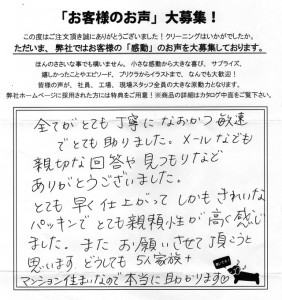 「お客様のお声」大募集！
この度はご注文頂き誠にありがとうございました！クリーニングはいかがでしたか。
ただいま、弊社ではお客様の「感動」のお声を大募集しております。
ほんのささいな事でも構いません。小さな感動から大きな喜び、サプライズ、
嬉しかったことやエピソード、プリクラからイラストまで、なんでも大歓迎！
皆様の声が、社員、工場、現場スタッフ全員の大きな原動力となります。
弊社ホームページに採用された方には特典をご用意！※商品の詳細はカタログ中面をご覧下さい。
全てがとても丁寧になおかつ敏速
でとても助りました。メールなども
親切な回答や見つもりなど
ありがとうございました。
とても早く仕上がってしかもきれいな
パッキンでとても親頼性が高く感じ
ました。またお願いさせて頂こうと
思います どうしても5人家族+
マンション住まいなので本当に助かります♡